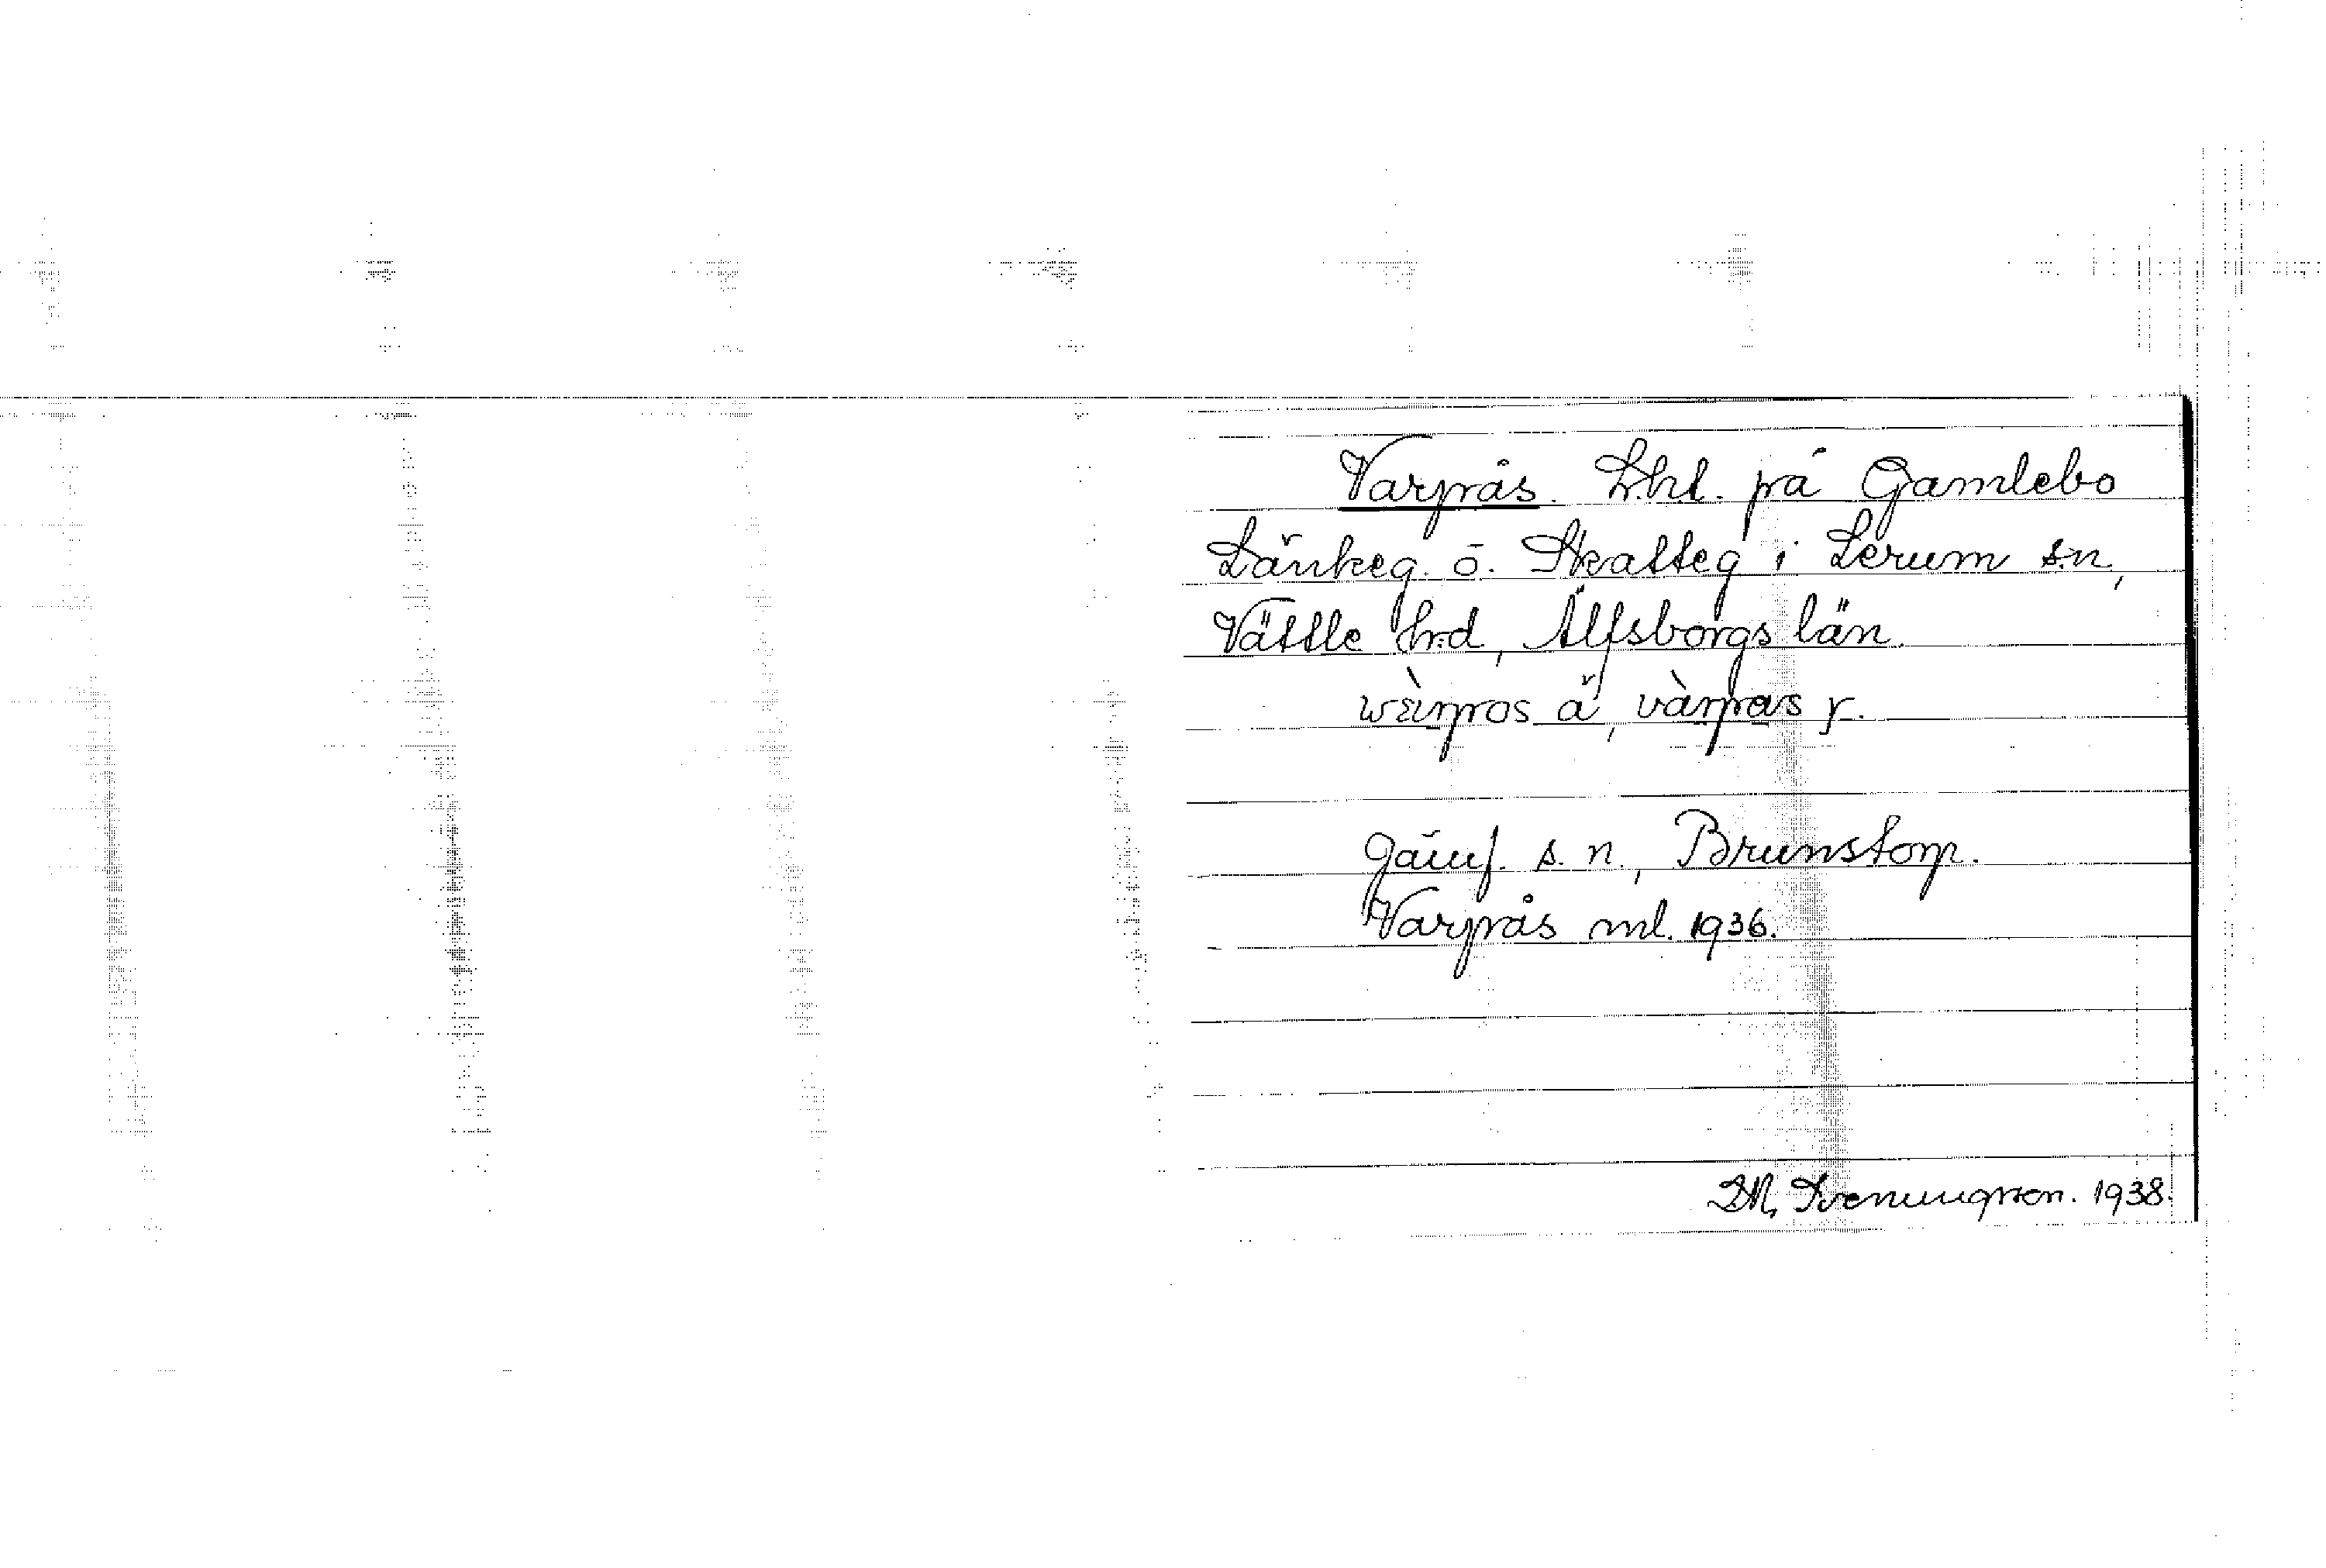 Varprås. Lht. på Gamlebo
Länkeg. o. Skatteg i Lerum sn,
Vättle hrd, Älfsborgs län.
wàrpros ä, vàrpras y.
Jämf. s. n., Brunstorp.
Varprås ml. 1936.
1938.